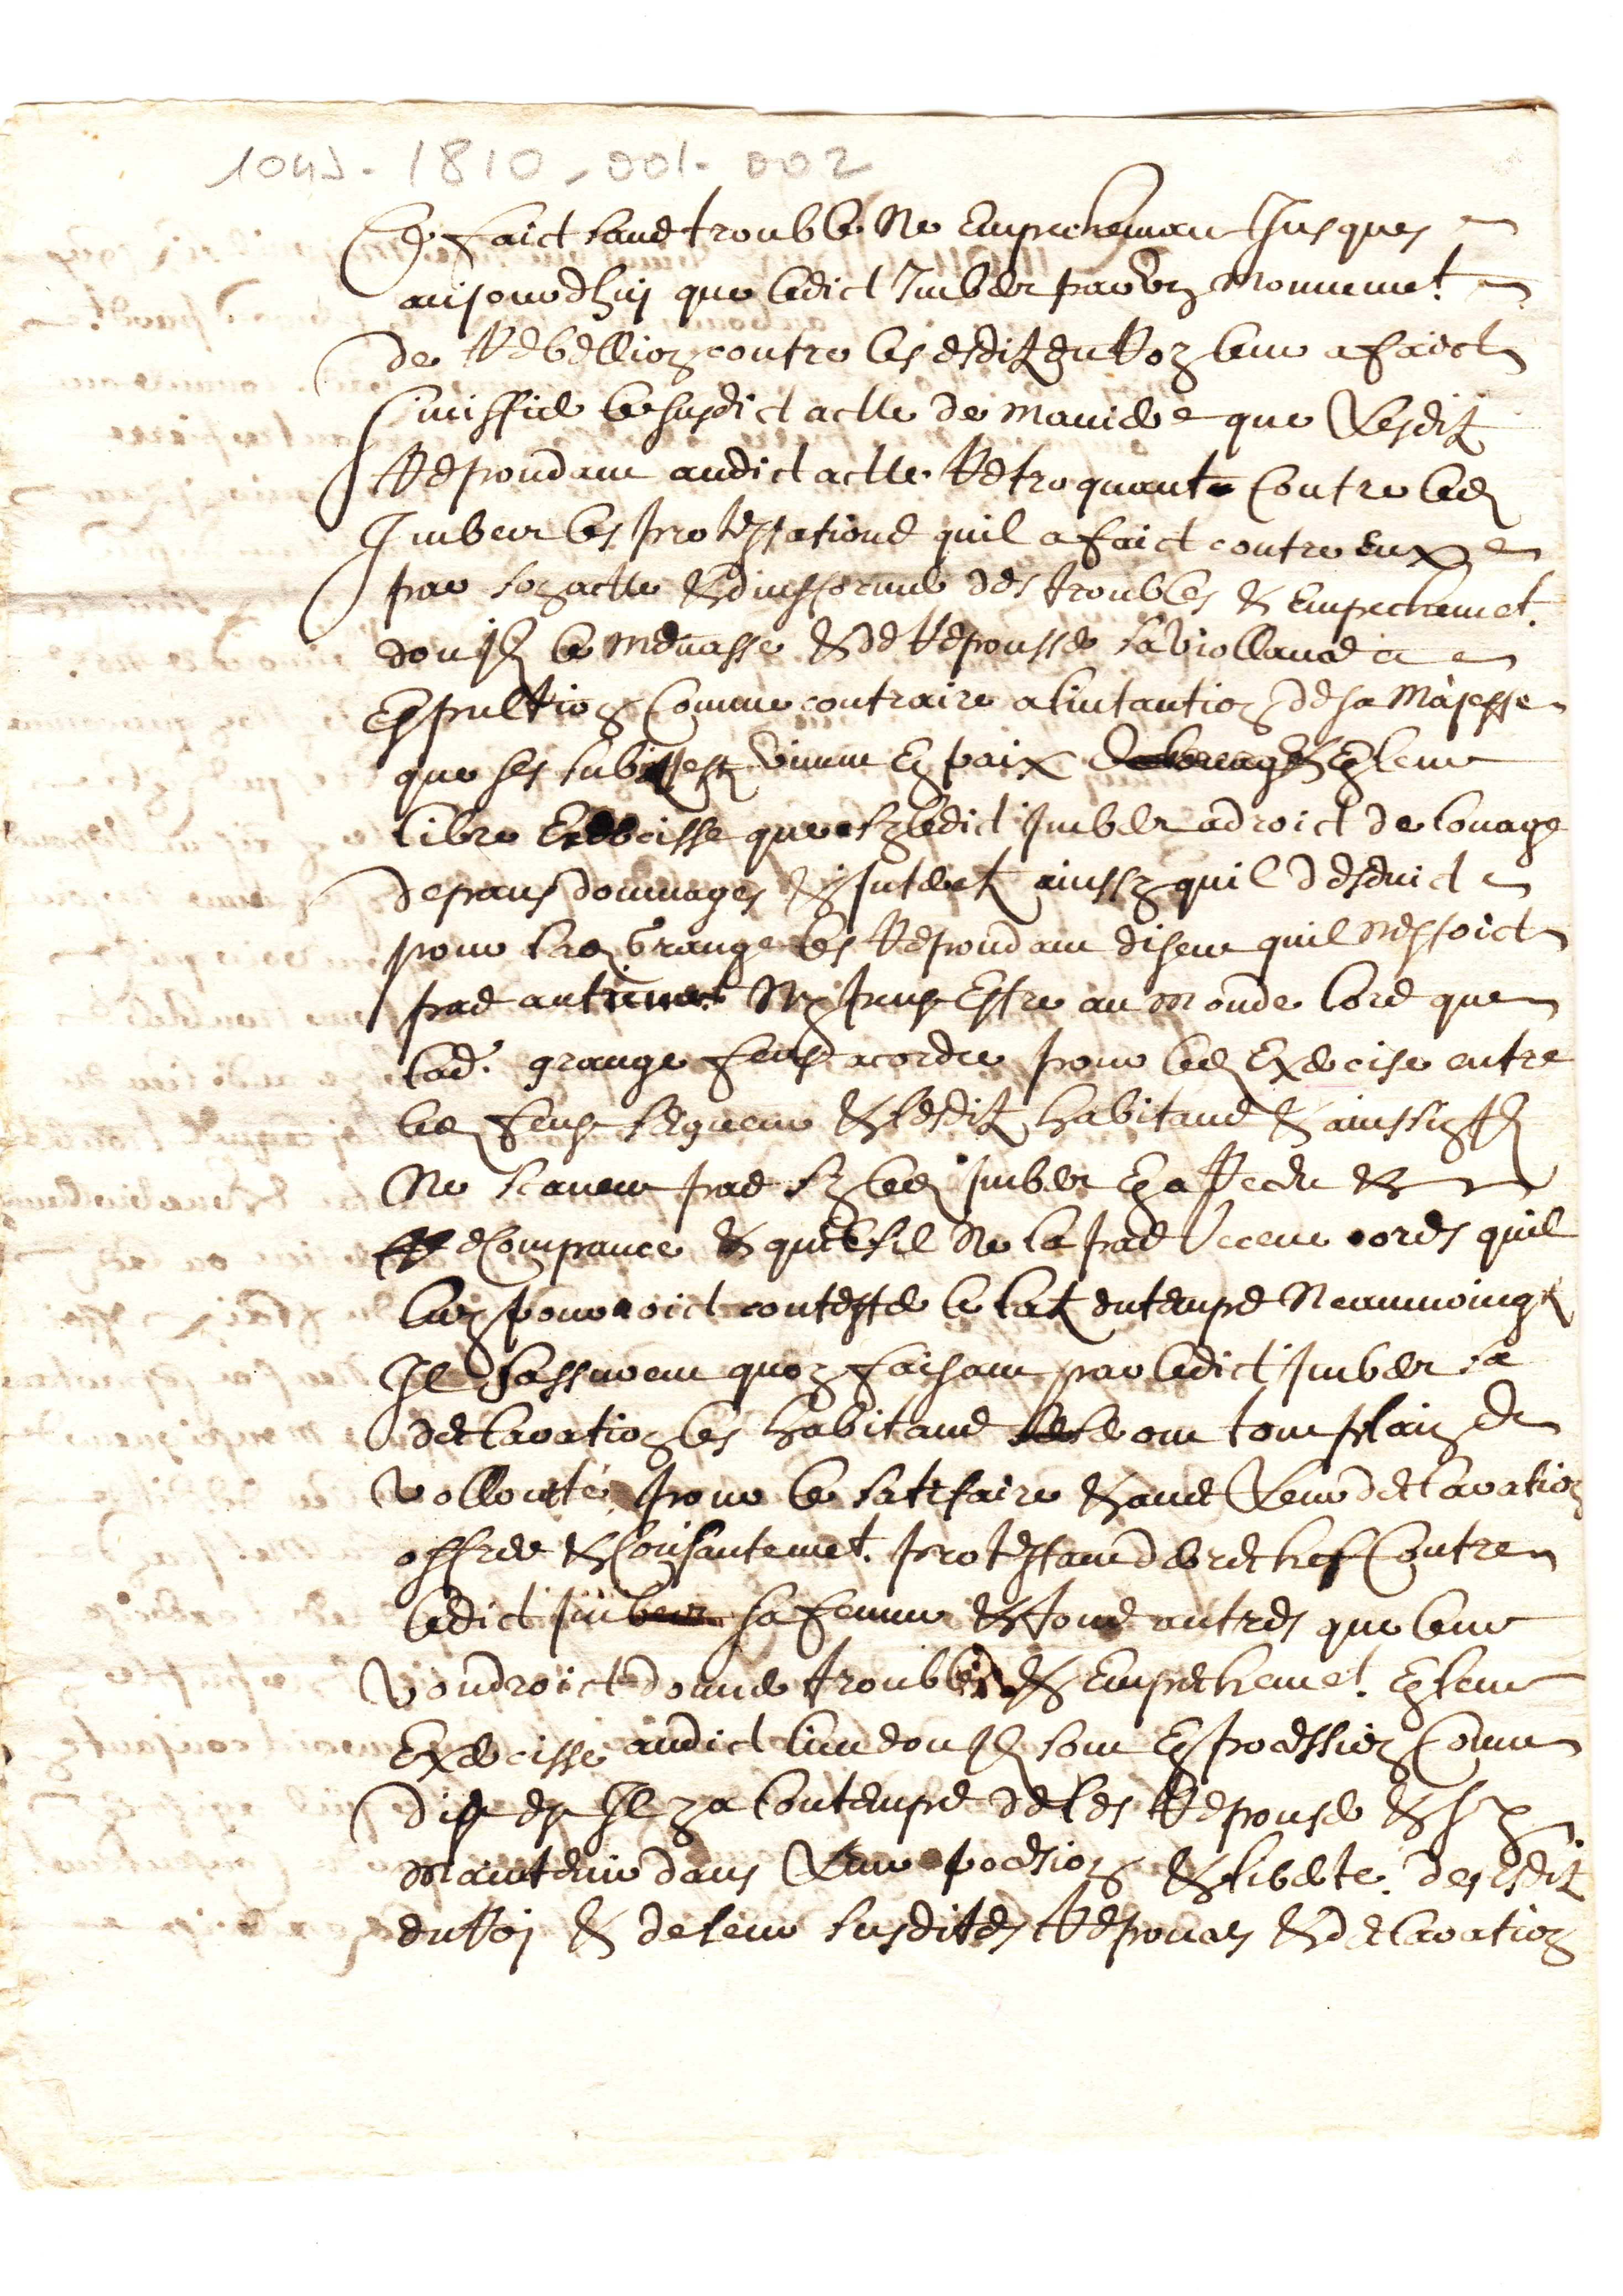 104J - 1810 - 001 - 002
En faict sans trouble ne empechemant Jusques
aujourdhuy que ledict Imber par un mouvement
de Rebellion contre les esditz du Roy leur a faict
sinissier le susdict acte de maniere que lesditz
Respondant audict acte Retroquant contre led
Imbeur les protestations quil a faict contre eux
par son acte & dinssormer des troubles & empechemet
don Ilz le menasse & de Repousser sa viollance
Expultion Comme contraire a lintantion de sa Majeste
que ses subjestz vivent En paix En leur
libre Exercisse que sy ledict Imber a droict de louage
depans dommages & Interetz ainssy quil desduict
pour lad Grange les Respondant disent quil nestoict
pas Ny peus Estre au monde lors que
lad. grange feust acordee pour led Exercise entre
led feu segneur & lesditz habitans & ainssy Ilz
Ne scavent pas sy led Imber En a
& que sil Ne la pas receue ores quil
luy pourroict contester le en temps Neanmoingtz
Il sassurent quen faisant par ledict Imber sa
declaration les habitans seront tout plain de
vollonté pour le satisfaire & avec leur declaration
offre & Consantemet. protestant derechef Contre
ledict Imber sa femme & tous autres que leur
voudroict donner trouble & Empechemet. En leur
Exercisse audict lieu don Ilz sont En possession Comme
dit est Il y a lontemps de les Reponse &
maintenir dans leur possion & liberte. des esditz
du Roi & de leur susdites Reponces & declaration